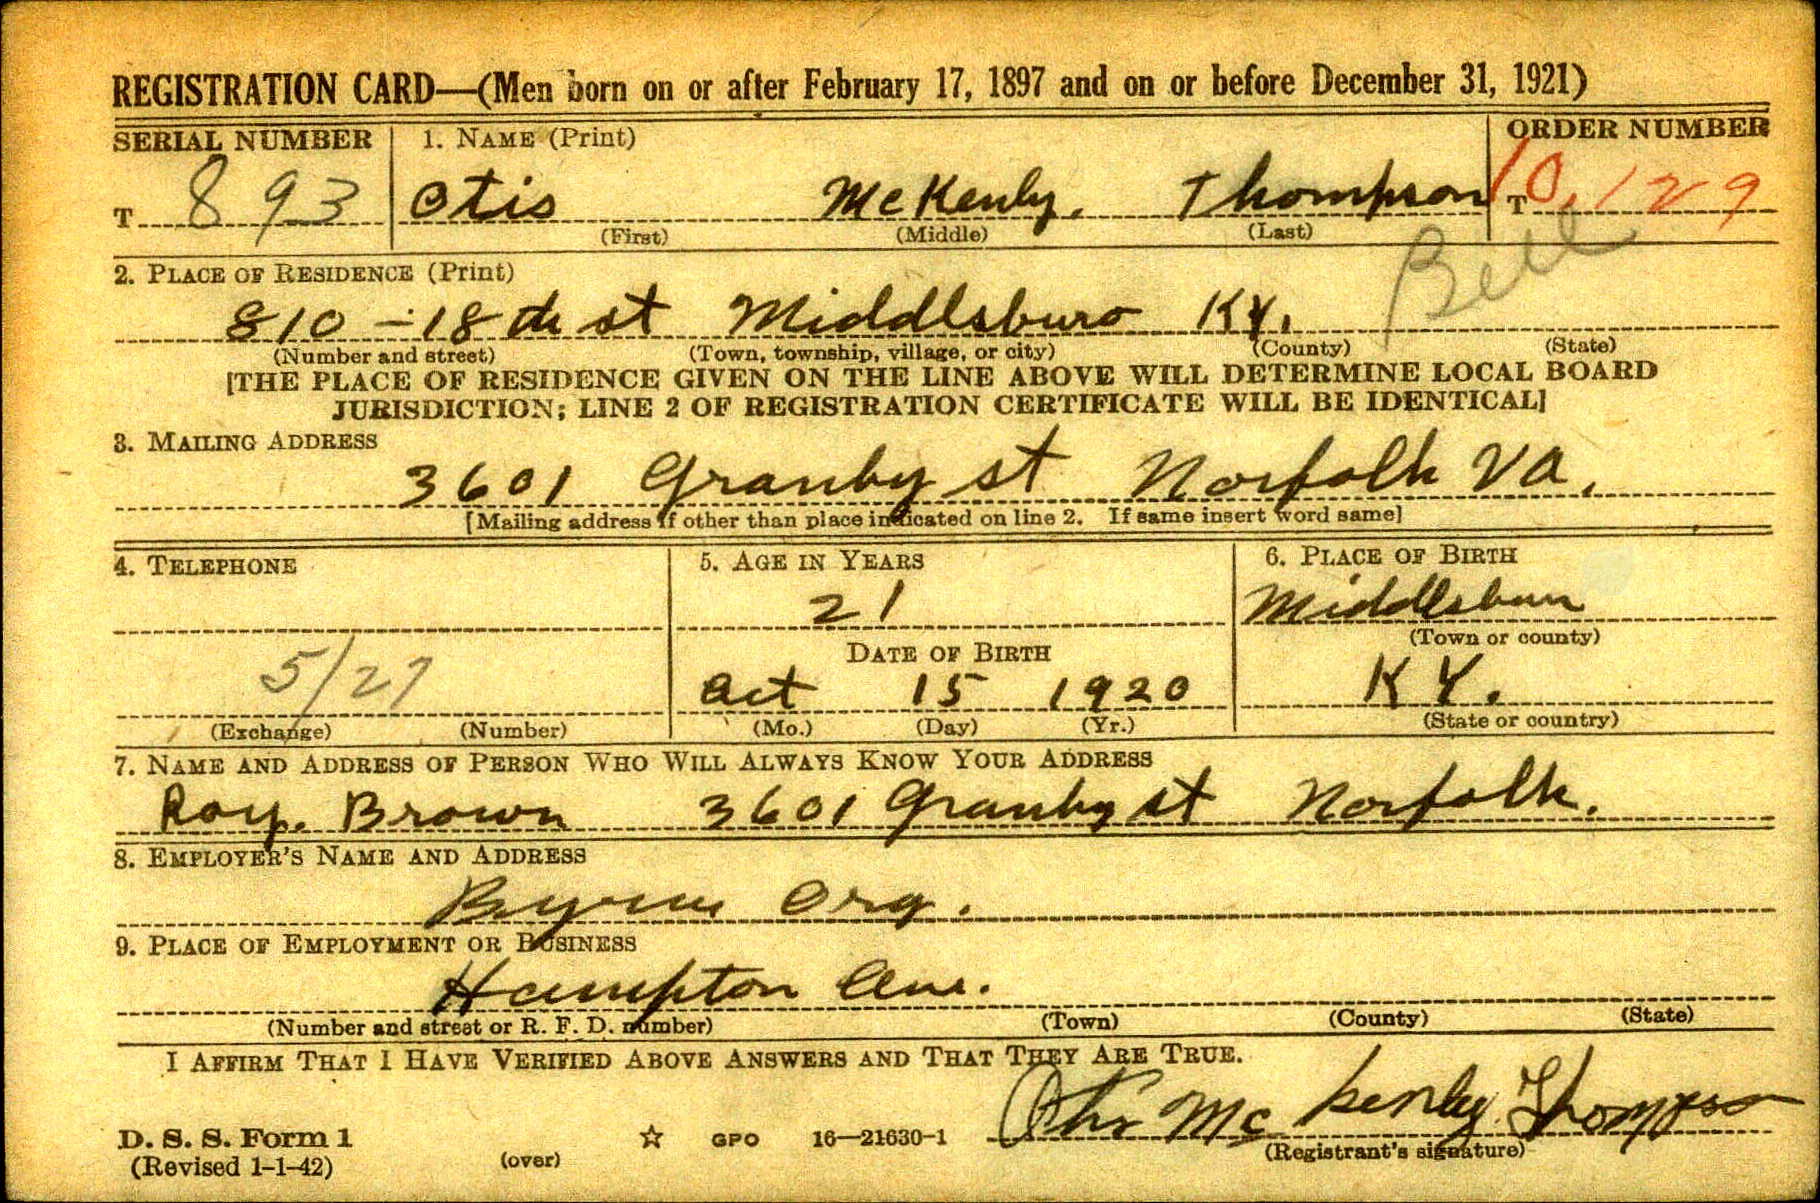 REGISTRATION CARD—(Men born on or after February 17, 1897 and on or before December 31, 1921)
SERIAL NUMBER 1. NAME (Print) ORDER NUMBER
T 893 Otis McKenly. Thompson T 10,129
(First) (Middle) (Last)
Bell
2. PLACE OF RESIDENCE (Print)
810 - 18th st Middlsburo Ky.
(Number and street) (Town, township, village, or city) (County) (State)
[THE PLACE OF RESIDENCE GIVEN ON THE LINE ABOVE WILL DETERMINE LOCAL BOARD
JURISDICTION; LINE 2 OF REGISTRATION CERTIFICATE WILL BE IDENTICAL]
3. MAILING ADDRESS
3601 Granby st Norfolk Va.
[Mailing address if other than place indicated on line 2. If same insert word same]
4. TELEPHONE 5. AGE IN YEARS 6. PLACE OF BIRTH
21 Middlsburo
(Town or county)
DATE OF BIRTH
5/27 Oct 15 1920 KY.
(Exchange) (Number) (Mo.) (Day) (Yr.) (State or country)
7. NAME AND ADDRESS OF PERSON WHO WILL ALWAYS KNOW YOUR ADDRESS
Roy. Brown 3601 Granby st Norfolk.
8. EMPLOYER'S NAME AND ADDRESS
Org.
9. PLACE OF EMPLOYMENT OR BUSINESS
Hampton Ave.
(Number and street or R. F. D. number) (Town) (County) (State)
I AFFIRM THAT I HAVE VERIFIED ABOVE ANSWERS AND THAT THEY ARE TRUE.
Otis McKenley Thompson
D. S. S. Form 1 GPO 16—21630-1
(Registrant's signature)
(Revised 1-1-42) (over)